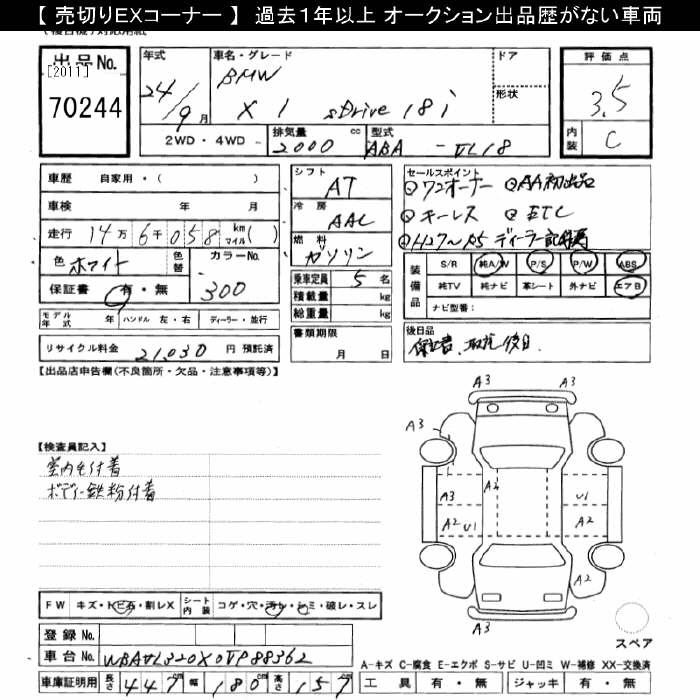 【 売切りEXコーナー 】 過去1年以上 オークション出品歴がない車両
出品No.
[2011]
70244
年式
24/9月
車名・グレード
BMW
X1 sDrive 18i
ドア
形状
2WD・4WD
排気量 2000 cc
型式 ABA - VL18
評価点
3.5
内装 C
車歴 自家用・( )
車検 年 月
走行 14万6千058 km マイル( )
色 ホワイト 色替
カラーNo. 300
保証書 有・無
モデル年式 年 ハンドル 左・右 ディーラー・並行
リサイクル料金 21,030 円 預託済
シフト AT
冷房 AAC
燃料 ガソリン
乗車定員 5 名
積載量 kg
総重量 kg
書類期限
月 日
セールスポイント
ワンオーナー AA初出品
キーレス ETC
H27～R5 ディーラー記録簿
装備品
S/R 純A/W P/S P/W ABS
純TV 純ナビ 革シート 外ナビ エアB
ナビ型番:
後日品
保証書、取説 後日.
【出品店申告欄(不良箇所・欠品・注意事項等)】
【検査員記入】
室内毛付着
ボディー鉄粉付着
A3 A3
A3
A3 A2 A2
A3 U1
A2 U1 A2
A2
A3
スペア
FW キズ・トビ石・割レX
シート内装 コゲ・穴・汚レ・シミ・破レ・スレ
登録No.
車台No. WBAVL320X0VP88362
車庫証明用 長さ 447 cm 幅 180 cm 高さ 157
A-キズ C-腐食 E-エクボ S-サビ U-凹ミ W-補修 XX-交換済
工具 有・無 ジャッキ 有・無